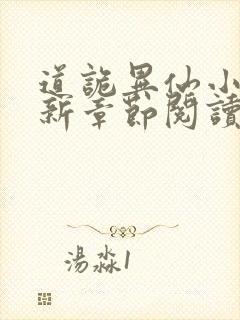 道詭異仙小
新章節閱讀
湯淼1